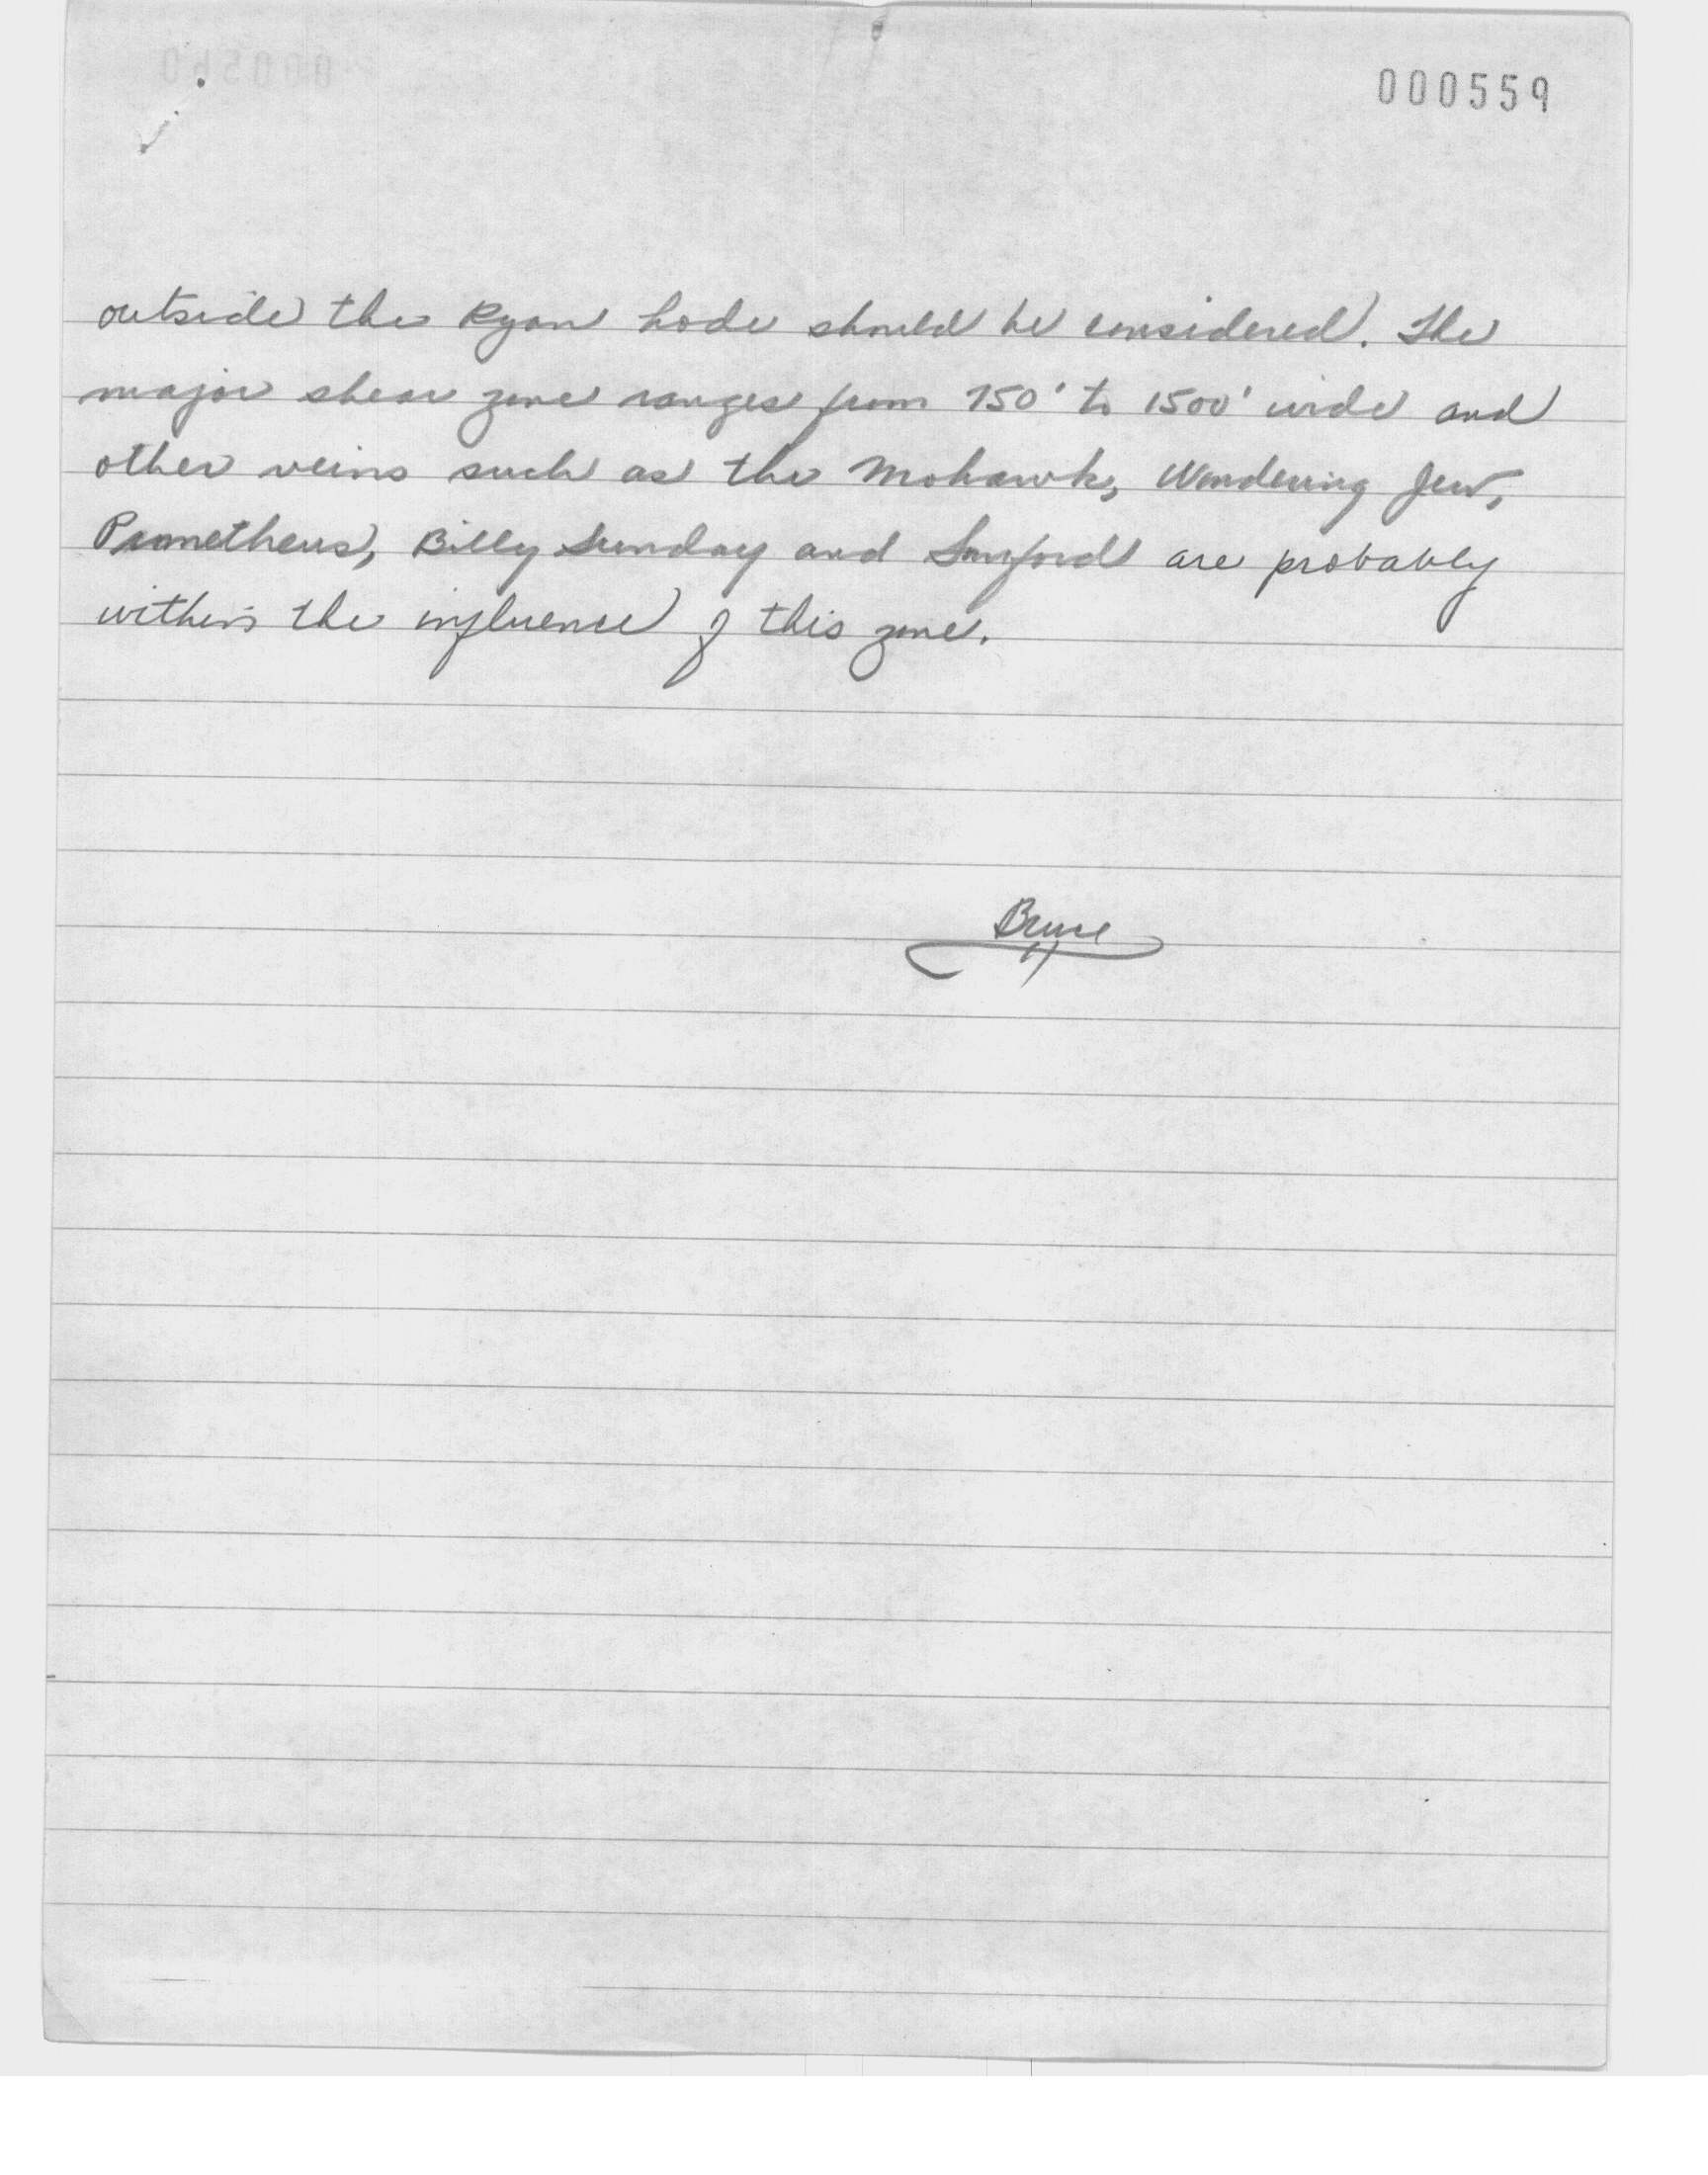 000559
outside the Ryan Lode should be considered. The
major shear zone ranges from 750' to 1500' wide and
other veins such as the Mohawk, Wandering Jew,
Prometheus, Billy Sunday and Sanford are probably
within the influence of this zone.
Bruce